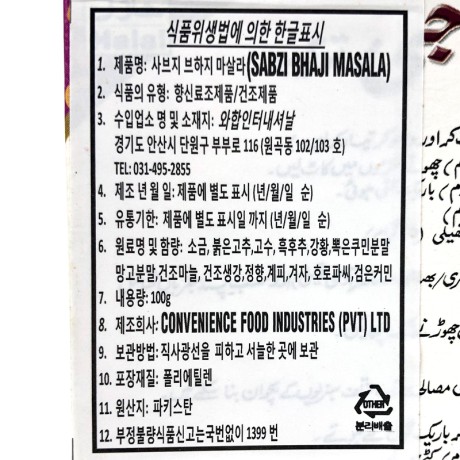 식품위생법에 의한 한글표시
1. 제품명: 사브지 브하지 마살라(SABZI BHAJI MASALA)
2. 식품의 유형: 향신료조제품/건조제품
3. 수입업소 명 및 소재지: 와합인터내셔날
경기도 안산시 단원구 부부로 116 (원곡동 102/103 호)
TEL: 031-495-2855
4. 제조 년 월 일: 제품에 별도 표시 (년/월/일 순)
5. 유통기한: 제품에 별도 표시일 까지 (년/월/일 순)
6. 원료명 및 함량: 소금, 붉은고추, 고수, 흑후추, 강황, 뿍은쿠민분말
망고분말, 건조마늘, 건조생강, 정향, 계피, 겨자, 호로파씨, 검은커민
7. 내용량: 100g
8. 제조회사: CONVENIENCE FOOD INDUSTRIES (PVT) LTD
9. 보관방법: 직사광선을 피하고 서늘한 곳에 보관
10. 포장재질: 폴리에틸렌
11. 원산지: 파키스탄
12. 부정불량식품신고는국번없이 1399 번
OTHER
분리배출